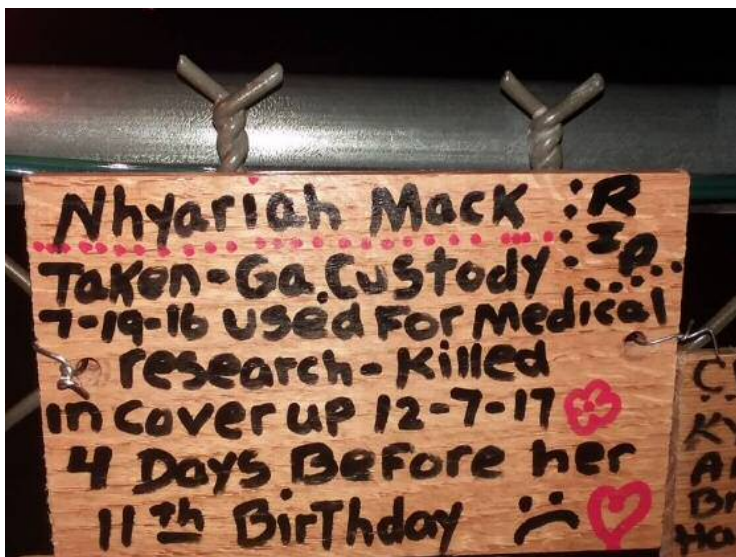 Nhyariah Mack :R
:I
Taken-Ga.Custody :P.....
7-19-16 used For Medical
research-Killed
in Cover up 12-7-17
4 Days Before her
11th BirThday